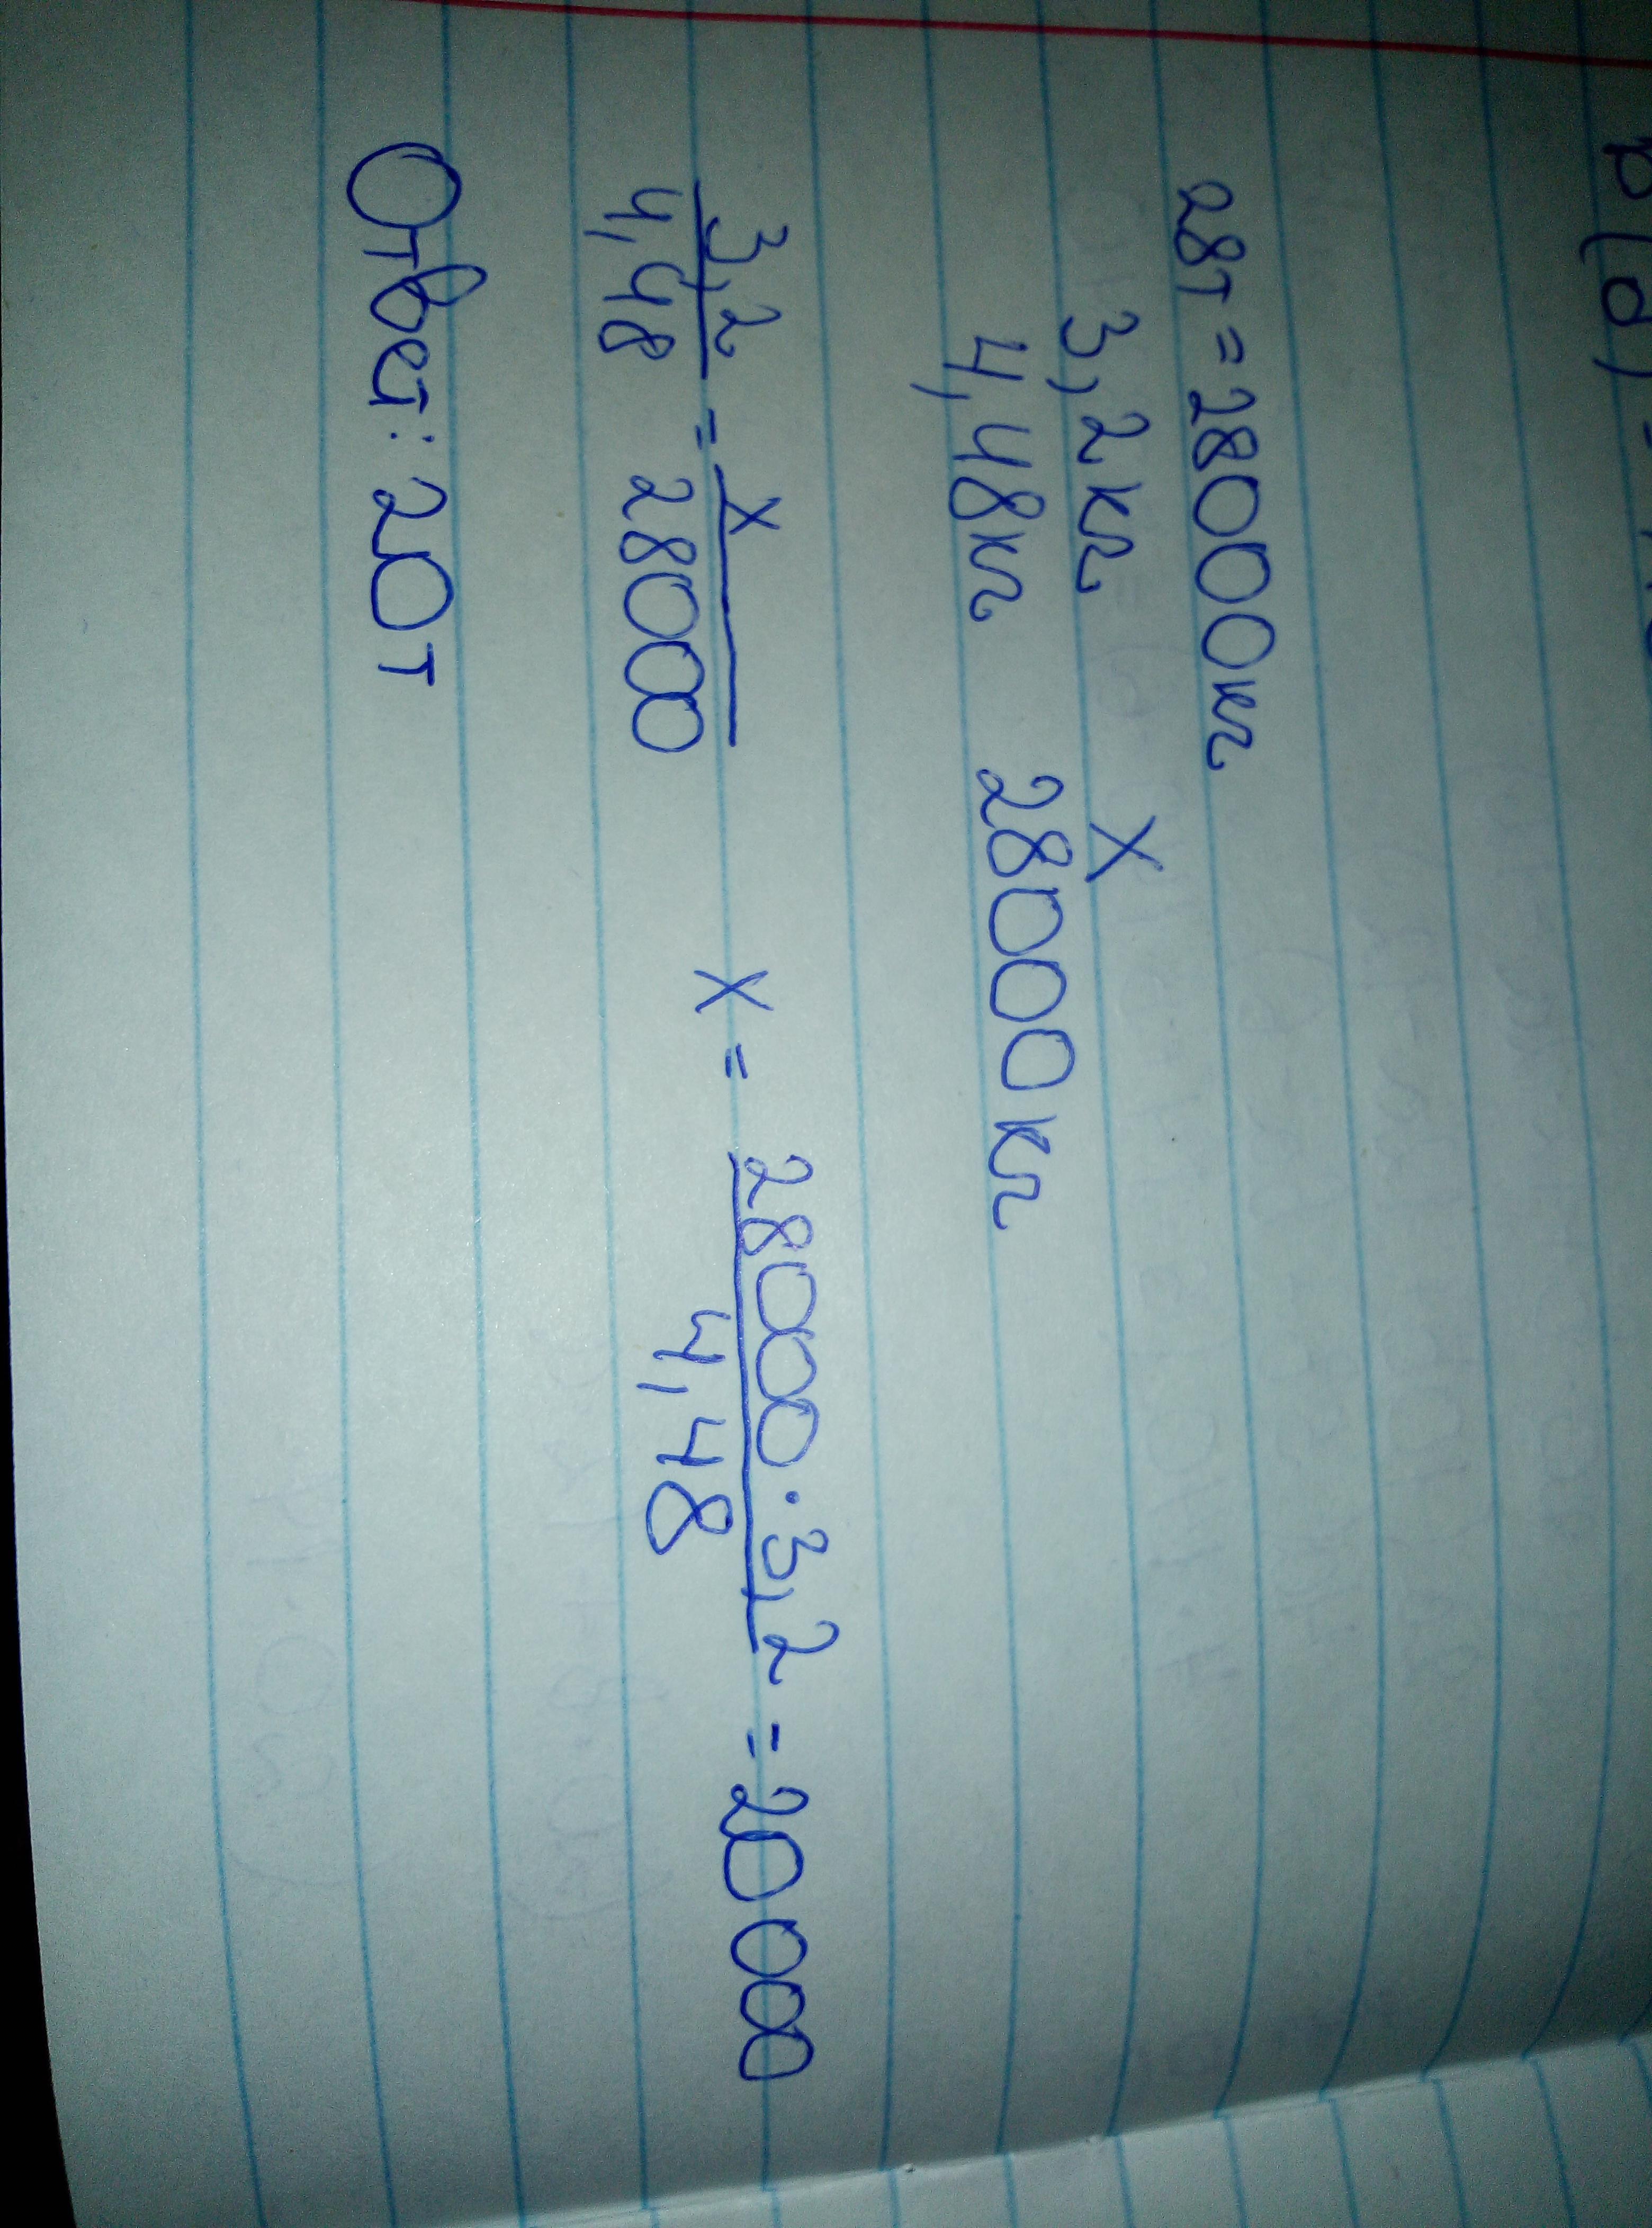 28т = 28000кг
3,2кг x
4,48кг 28000кг
3,2/4,48 = x/28000 x = 28000 · 3,2/4,48 = 20000
Ответ: 20т